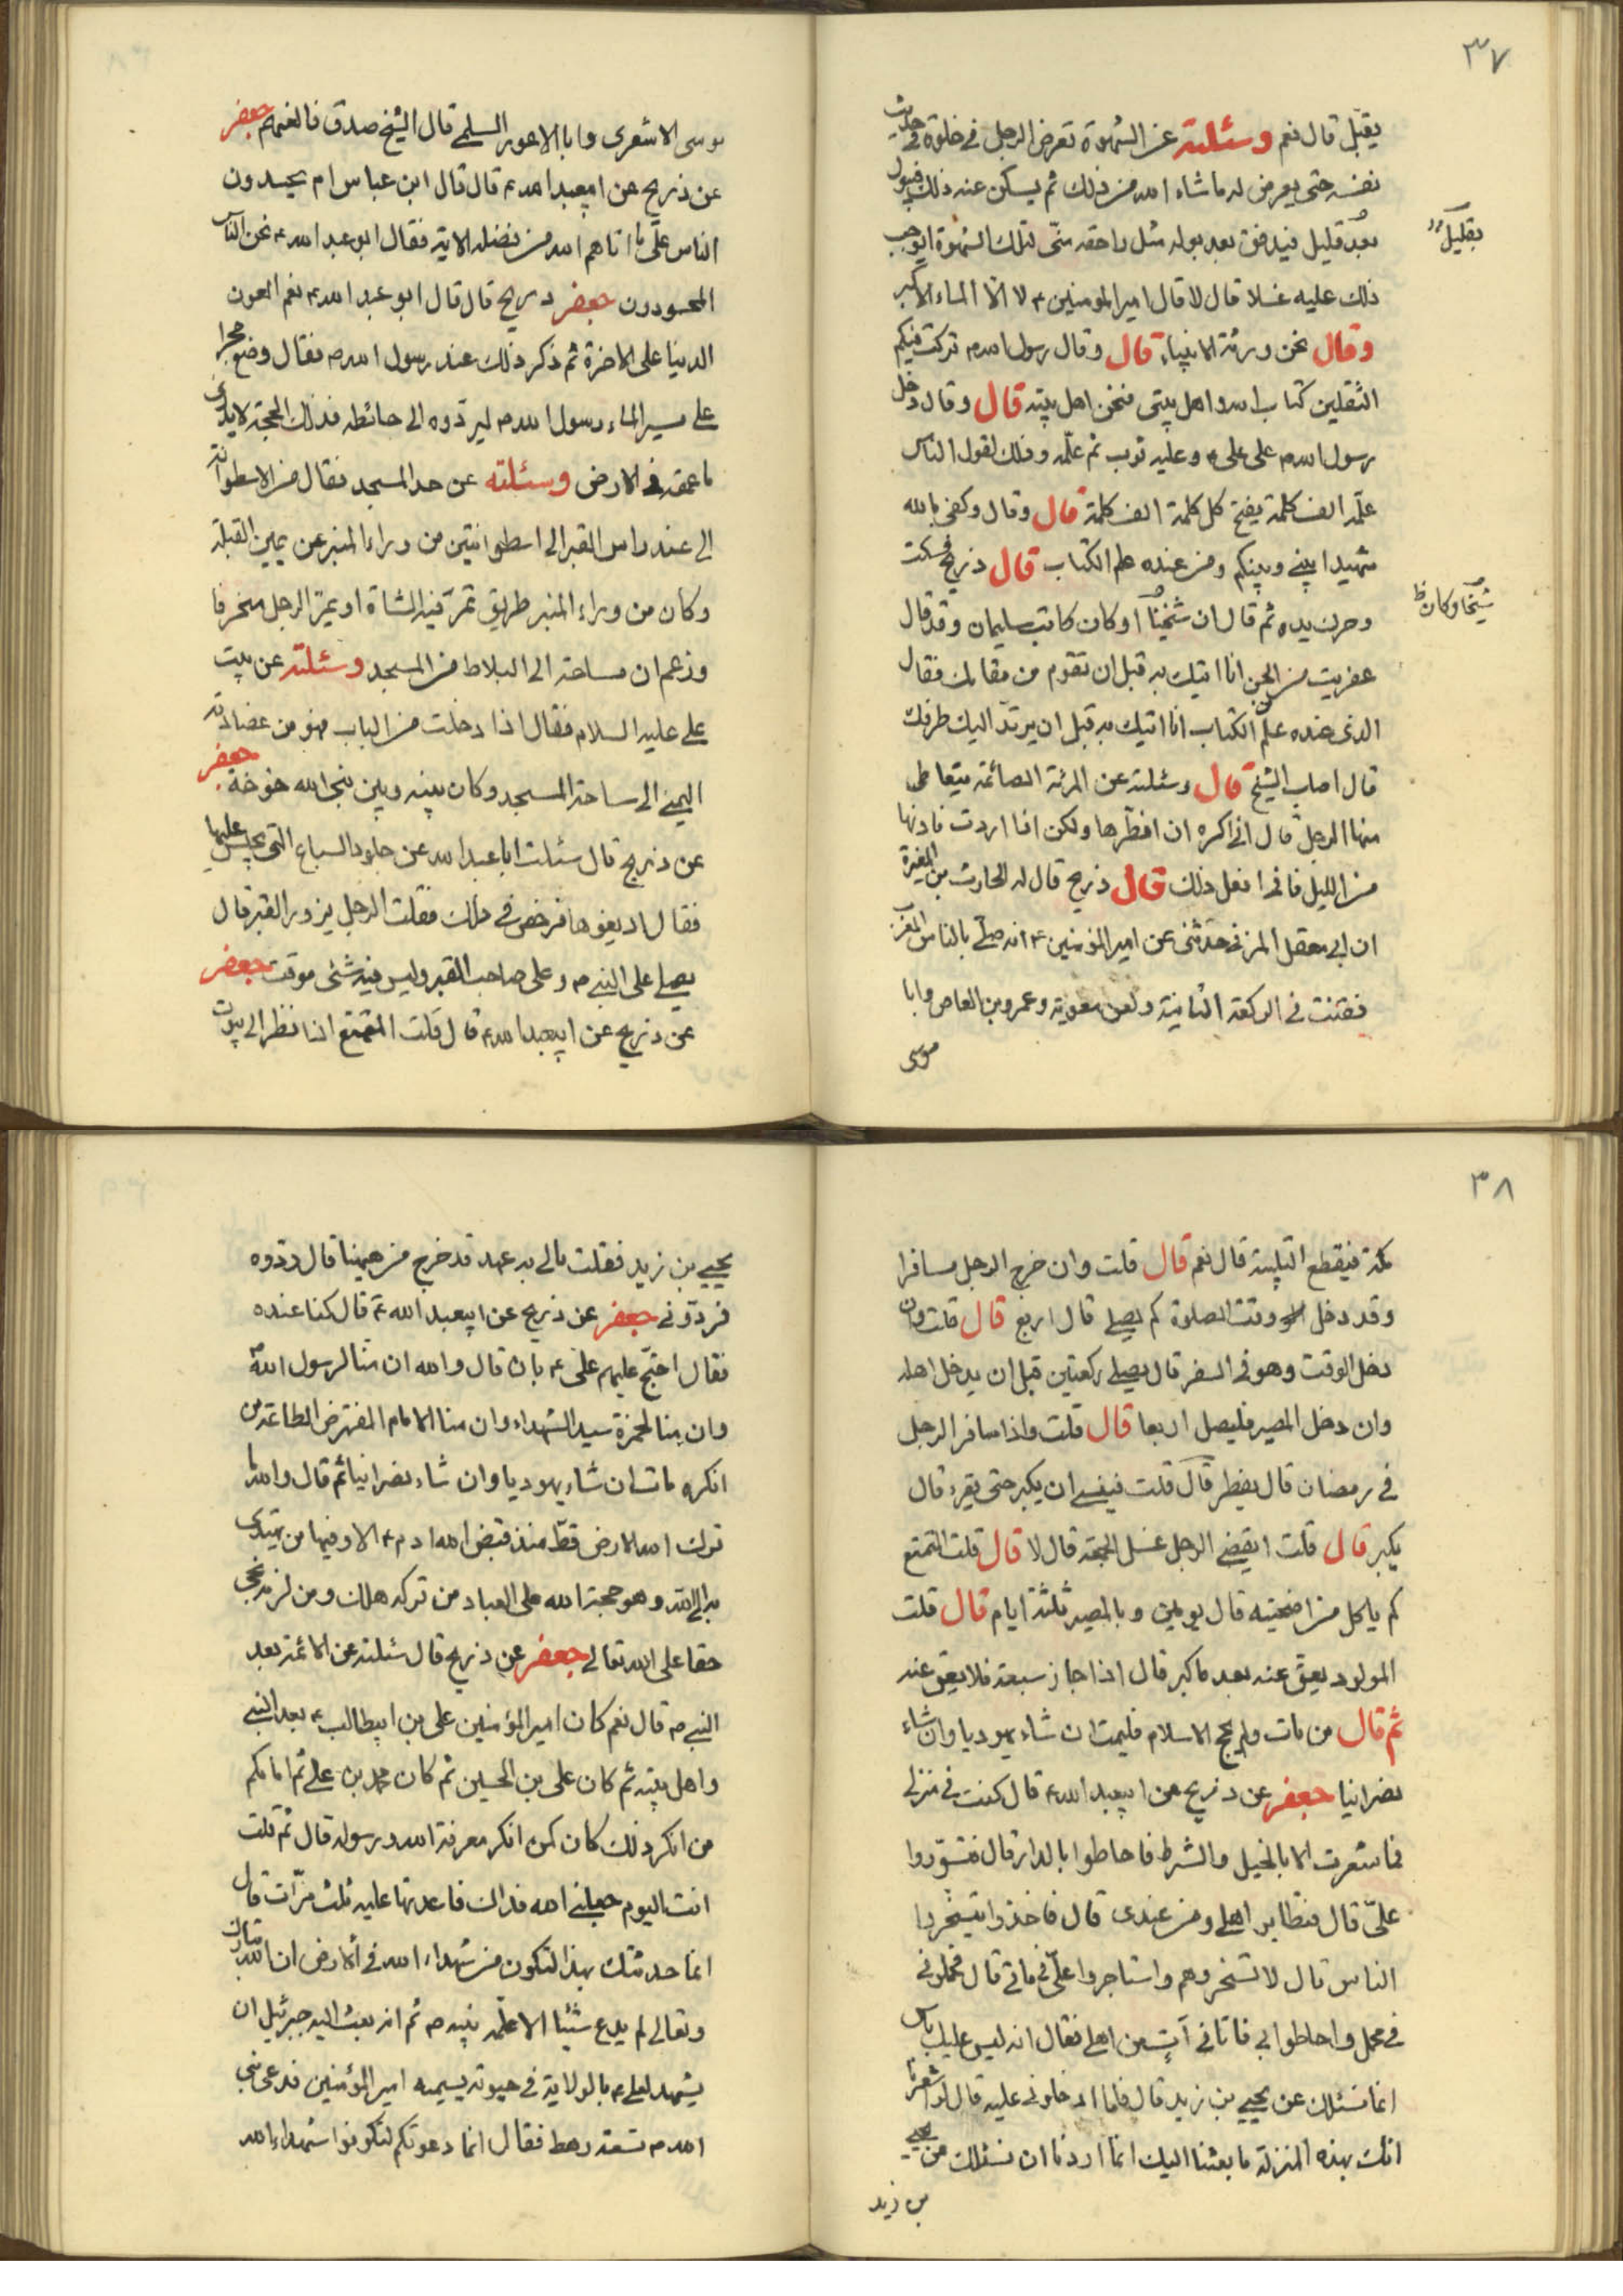 ٣٧
يقبّل قال نعم وسئلته عن الشهوة تعرض الرجل في خلوة في حديث
نفسه حتى يعرض له ما شاء الله من ذلك ثم يسكن عنه ذلك فيبول
بعد قليل فيدفق بعد بوله مثل راحته منّى لتلك الشهوة ايوجب
بقليل
ذلك عليه غسلا قال لا قال امير المومنين ع لا الا الماء الاكبر
وقال نحن ورثة الانبياء قال وقال رسول الله ص تركت فيكم
الثقلين كتاب الله واهل بيتي فنحن اهل بيته قال وقال دخل
رسول الله ص على علي ع وعليه ثوب ثم علّمه وذلك لقول الناس
علّمه الف كلمة يفتح كل كلمة الف كلمة قال وقال وكفى بالله
شهيدا بيني وبينكم ومن عنده علم الكتاب قال ذريح فسكت
وحرك يده ثم قال ان شيخنا اوكان كاتب سليمان وقد قال
شيخا وكان ظ
عفريت من الجن انا اتيك به قبل ان تقوم من مقامك فقال
الذى عنده علم الكتاب انا اتيك به قبل ان يرتدّ اليك طرفك
قال اصاب الشيخ قال وسئلته عن المرئة الصائمة يتعاطى
منها الرجل قال انى اكره ان افطّرها ولكن اذا اردت فادنها
من الليل فانى افعل ذلك قال ذريح قال له الحارث بن المغيرة
ان ابى معقل المزنى حدّثنى عن امير المؤمنين ع انه صلّى بالناس المغرب
فقنت في الركعة الثانية ولعن معوية وعمرو بن العاص وابا
موسى
موسى الاشعرى وابا الاعور السلمى قال الشيخ صدق فالعنهم جعفر
عن ذريح عن ابيعبد الله ع قال قال ابن عباس ام يحسدون
الناس على ما اتاهم الله من فضله الاية فقال ابو عبد الله ع نحن الناس
المحسودون جعفر ذريح قال قال ابو عبد الله ع نعم العون
الدنيا على الاخرة ثم ذكر ذلك عند رسول الله ص فقال وضع حجرا
على مسير الماء رسول الله ص ليردّوه الى حائطه فذلك الحجة لا يدرى
ما عمقه في الارض وسئلته عن حد المسجد فقال من الاسطوانة
الى عند راس القبر الى اسطوانتين من وراء المنبر عن يمين القبلة
وكان من وراء المنبر طريق تمرّ فيه الشاة او يمرّ الرجل منحرفا
وزعم ان مساحة الى البلاط من المسجد وسئلته عن بيت
على عليه السلام فقال اذا دخلت من الباب فهو من عضادته
اليمنى الى ساحة المسجد وكان بينه وبين نبى الله خوخة جعفر
عن ذريح قال سئلت ابا عبد الله عن جلود السباع التى يجلس عليها
فقال ادبغوها فرخص في ذلك فقلت الرجل يزور القبر قال
يصلى على النبى ص وعلى صاحب القبر وليس فيه شئى موقت جعفر
عن ذريح عن ابيعبد الله ع قال قلت المتمتع اذا نظر الى بيوت
٣٨
مكة فيقطع التلبية قال نعم قال قلت وان خرج الرجل مسافرا
وقد دخل وقت الصلوة كم يصلى قال اربع قال قلت وان
دخل الوقت وهو في السفر قال يصلى ركعتين قبل ان يدخل اهله
وان دخل المصر فليصل اربعا قال قلت واذا سافر الرجل
في رمضان قال يفطر قال قلت فينسى ان يكبر حتى يقرء قال
يكبر قال قلت ايقضى الرجل غسل الجمعة قال لا قال قلت المتمتع
كم ياكل من اضحيته قال يومين وبالمصر ثلثة ايام قال قلت
المولود يعق عنه بعد ما كبر قال اذا جاز سبعة فلا يعق عنه
ثم قال من مات ولم يحج الاسلام فليمت ان شاء يهوديا وان شاء
نصرانيا جعفر عن ذريح عن ابيعبد الله ع قال كنت في منزلى
فما شعرت الا بالخيل والشرط فاحاطوا بالدار قال فتسوّروا
علىّ قال فتطاير اهلى ومن عندى قال فاخذوا يتسخّروا
الناس قال لا تسخروهم واستاجروا علىّ في مالى قال فحملونى
في محمل واحاطوا بى فاتانى آتٍ من اهلى فقال انه ليس عليك باس
انما نسئلك عن يحيى بن زيد قال فلما ادخلونى عليه قال لو شعرنا
انك بهذه المنزلة ما بعثنا اليك انما اردنا ان نسئلك عن يحيى
بن زيد
يحيى بن زيد فقلت مالى به عهد قد خرج من هيهنا قال ردّوه
فردّونى جعفر عن ذريح عن ابيعبد الله ع قال كنا عنده
فقال احتج عليهم على ع بان قال والله ان منا لرسول الله ص
وان منا لحمزة سيد الشهداء وان منا الامام المفترض الطاعة من
انكره مات ان شاء يهوديا وان شاء نصرانيا ثم قال والله ما
ترك الله الارض قط منذ قبض الله ادم ع الا وفيها من يهتدى
به الى الله وهو حجة الله على العباد من تركه هلك ومن لزمه نجى
حقا على الله تعالى جعفر عن ذريح قال سئلته عن الائمة بعد
النبى ص قال نعم كان امير المؤمنين على بن ابيطالب ع بعد النبى
واهل بيته ثم كان على بن الحسين ثم كان محمد بن على ثم امامكم
من انكر ذلك كان كمن انكر معرفة الله ورسوله قال ثم قلت
انت اليوم جعلنى الله فداك فاعدتها عليه ثلث مرّات قال
انما حدثتك بهذا لتكون من شهداء الله في الارض ان الله تبارك
وتعالى لم يدع شيئا الا علّمه نبيه ص ثم انه بعث اليه جبرئيل ان
يشهد لعلى ع بالولاية في حيوته يسميه امير المؤمنين فدعى نبى
الله ص تسعة رهط فقال انما دعوتكم لتكونوا شهداء الله